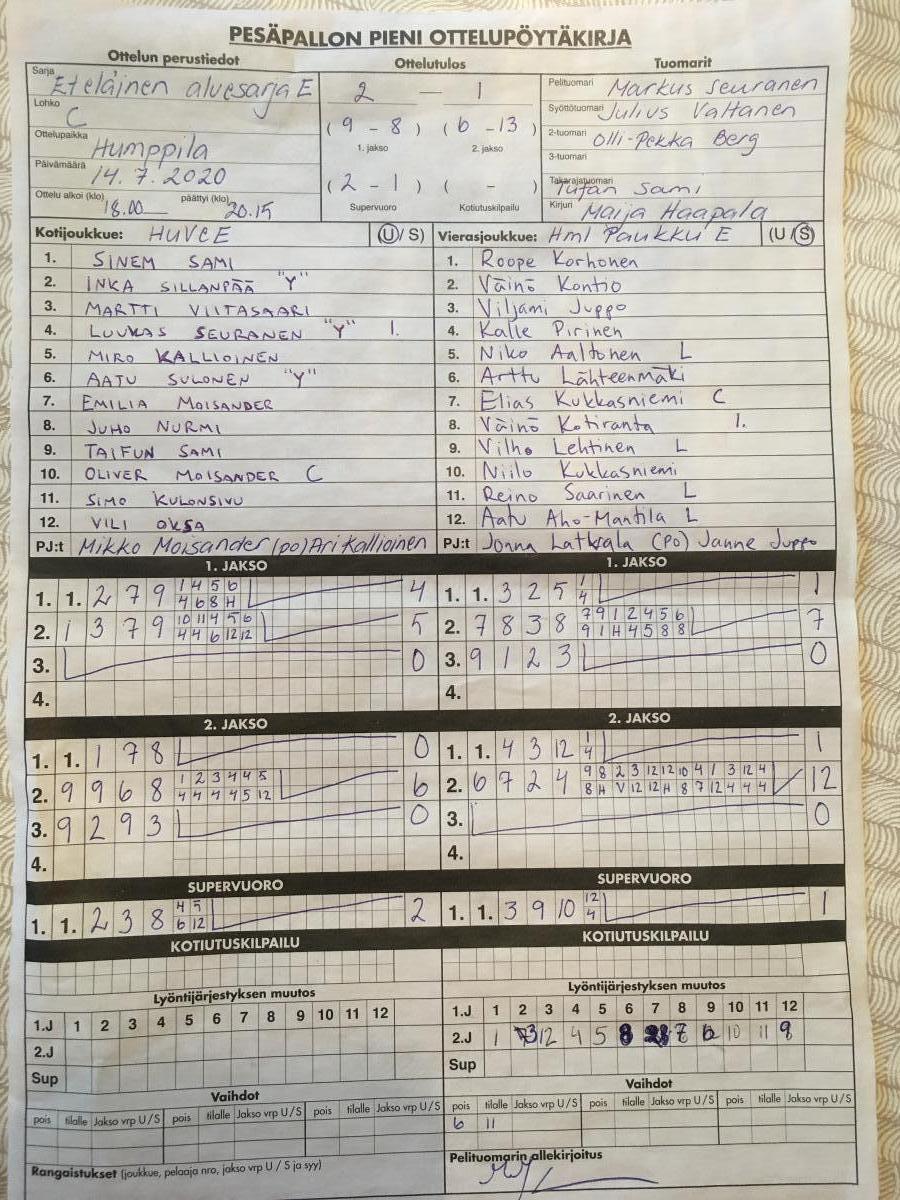 PESÄPALLON PIENI OTTELUPÖYTÄKIRJA
Ottelun perustiedot
Sarja Eteläinen aluesarja E
Lohko C
Ottelupaikka Humppila
Päivämäärä 14.7.2020
Ottelu alkoi (klo) 18.00 päättyi (klo) 20.15
Ottelutulos
2 — 1
( 9 - 8 ) ( 6 - 13 )
1. jakso 2. jakso
( 2 - 1 ) ( - )
Supervuoro Kotiutuskilpailu
Tuomarit
Pelituomari Markus Seuranen
Syöttötuomari Julius Valtanen
2-tuomari Olli-Pekka Berg
3-tuomari
Takarajatuomari Tufan Sami
Kirjuri Maija Haapala
Kotijoukkue: HUVE E (U/S)
1. SINEM SAMI
2. INKA SILLANPÄÄ "Y"
3. MARTTI VIITASAARI
4. LUUKAS SEURANEN "Y" 1.
5. MIRO KALLIOINEN
6. AATU SULONEN "Y"
7. EMILIA MOISANDER
8. JUHO NURMI
9. TAIFUN SAMI
10. OLIVER MOISANDER C
11. SIMO KULONSIVU
12. VILI OKSA
PJ:t Mikko Moisander (po) Ari Kallioinen
Vierasjoukkue: Hml Paukku E (U/S)
1. Roope Korhonen
2. Väinö Kontio
3. Viljami Juppo
4. Kalle Pirinen
5. Niko Aaltonen L
6. Arttu Lähteenmäki
7. Elias Kukkasniemi C
8. Väinö Kotiranta 1.
9. Vilho Lehtinen L
10. Niilo Kukkasniemi
11. Reino Saarinen L
12. Aatu Aho-Mantila L
PJ:t Jonna Latvala (po) Janne Juppo
1. JAKSO
1. 1. 2 7 9 1 4 5 6 4
4 6 8 H
2. 1 3 7 9 10 11 4 5 6 5
4 4 6 12 12
3. 0
4.
1. JAKSO
1. 1. 3 2 5 1 1
4
2. 7 8 3 8 7 9 1 2 4 5 6 7
9 1 H 4 5 8 8
3. 9 1 2 3 0
4.
2. JAKSO
1. 1. 1 7 8 0
2. 9 9 6 8 1 2 3 4 4 5 6
4 4 4 4 5 12
3. 9 2 9 3 0
4.
2. JAKSO
1. 1. 4 3 12 1 1
4
2. 6 7 2 4 9 8 2 3 12 12 10 4 1 3 12 4 12
8 H V 12 12 H 8 7 12 4 4 4
3. 0
4.
SUPERVUORO
1. 1. 2 3 8 4 5 2
6 12
SUPERVUORO
1. 1. 3 9 10 12 1
4
KOTIUTUSKILPAILU
KOTIUTUSKILPAILU
Lyöntijärjestyksen muutos
1.J 1 2 3 4 5 6 7 8 9 10 11 12
2.J
Sup
Lyöntijärjestyksen muutos
1.J 1 2 3 4 5 6 7 8 9 10 11 12
2.J 1 3 12 4 5 8 7 6 10 11 9
Sup
Vaihdot
pois tilalle Jakso vrp U/S pois tilalle Jakso vrp U/S pois tilalle Jakso vrp U/S
Vaihdot
pois tilalle Jakso vrp U/S pois tilalle Jakso vrp U/S pois tilalle Jakso vrp U/S
6 11
Rangaistukset (joukkue, pelaaja nro, jakso vrp U / S ja syy)
Pelituomarin allekirjoitus